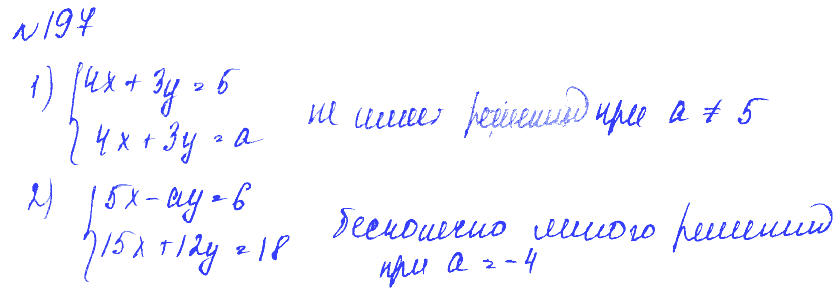 №197
1) { 4x + 3y = 5
4x + 3y = a не имеет решений при a ≠ 5
2) { 5x - ay = 6
15x + 12y = 18 бесконечно много решений
при a = -4